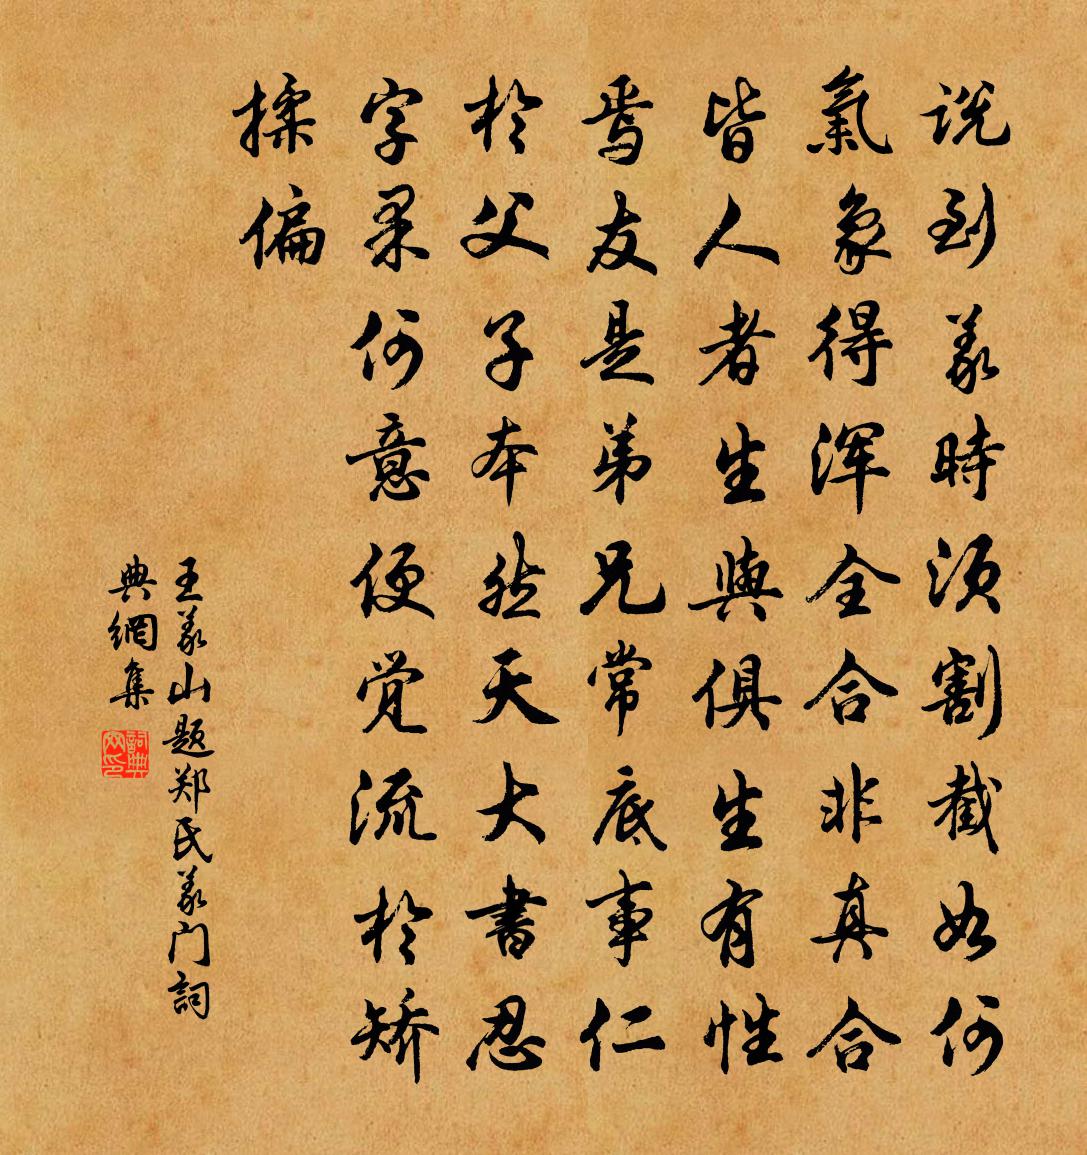 説到義時須割截如何
氣象得渾全合非真合
皆人者生與俱生有性
焉友是弟兄常底事仁
於父子本然天大書忍
字果何意便覺流於矯
揉偏
王義山題鄭氏義門詞
典網集
詞典網印